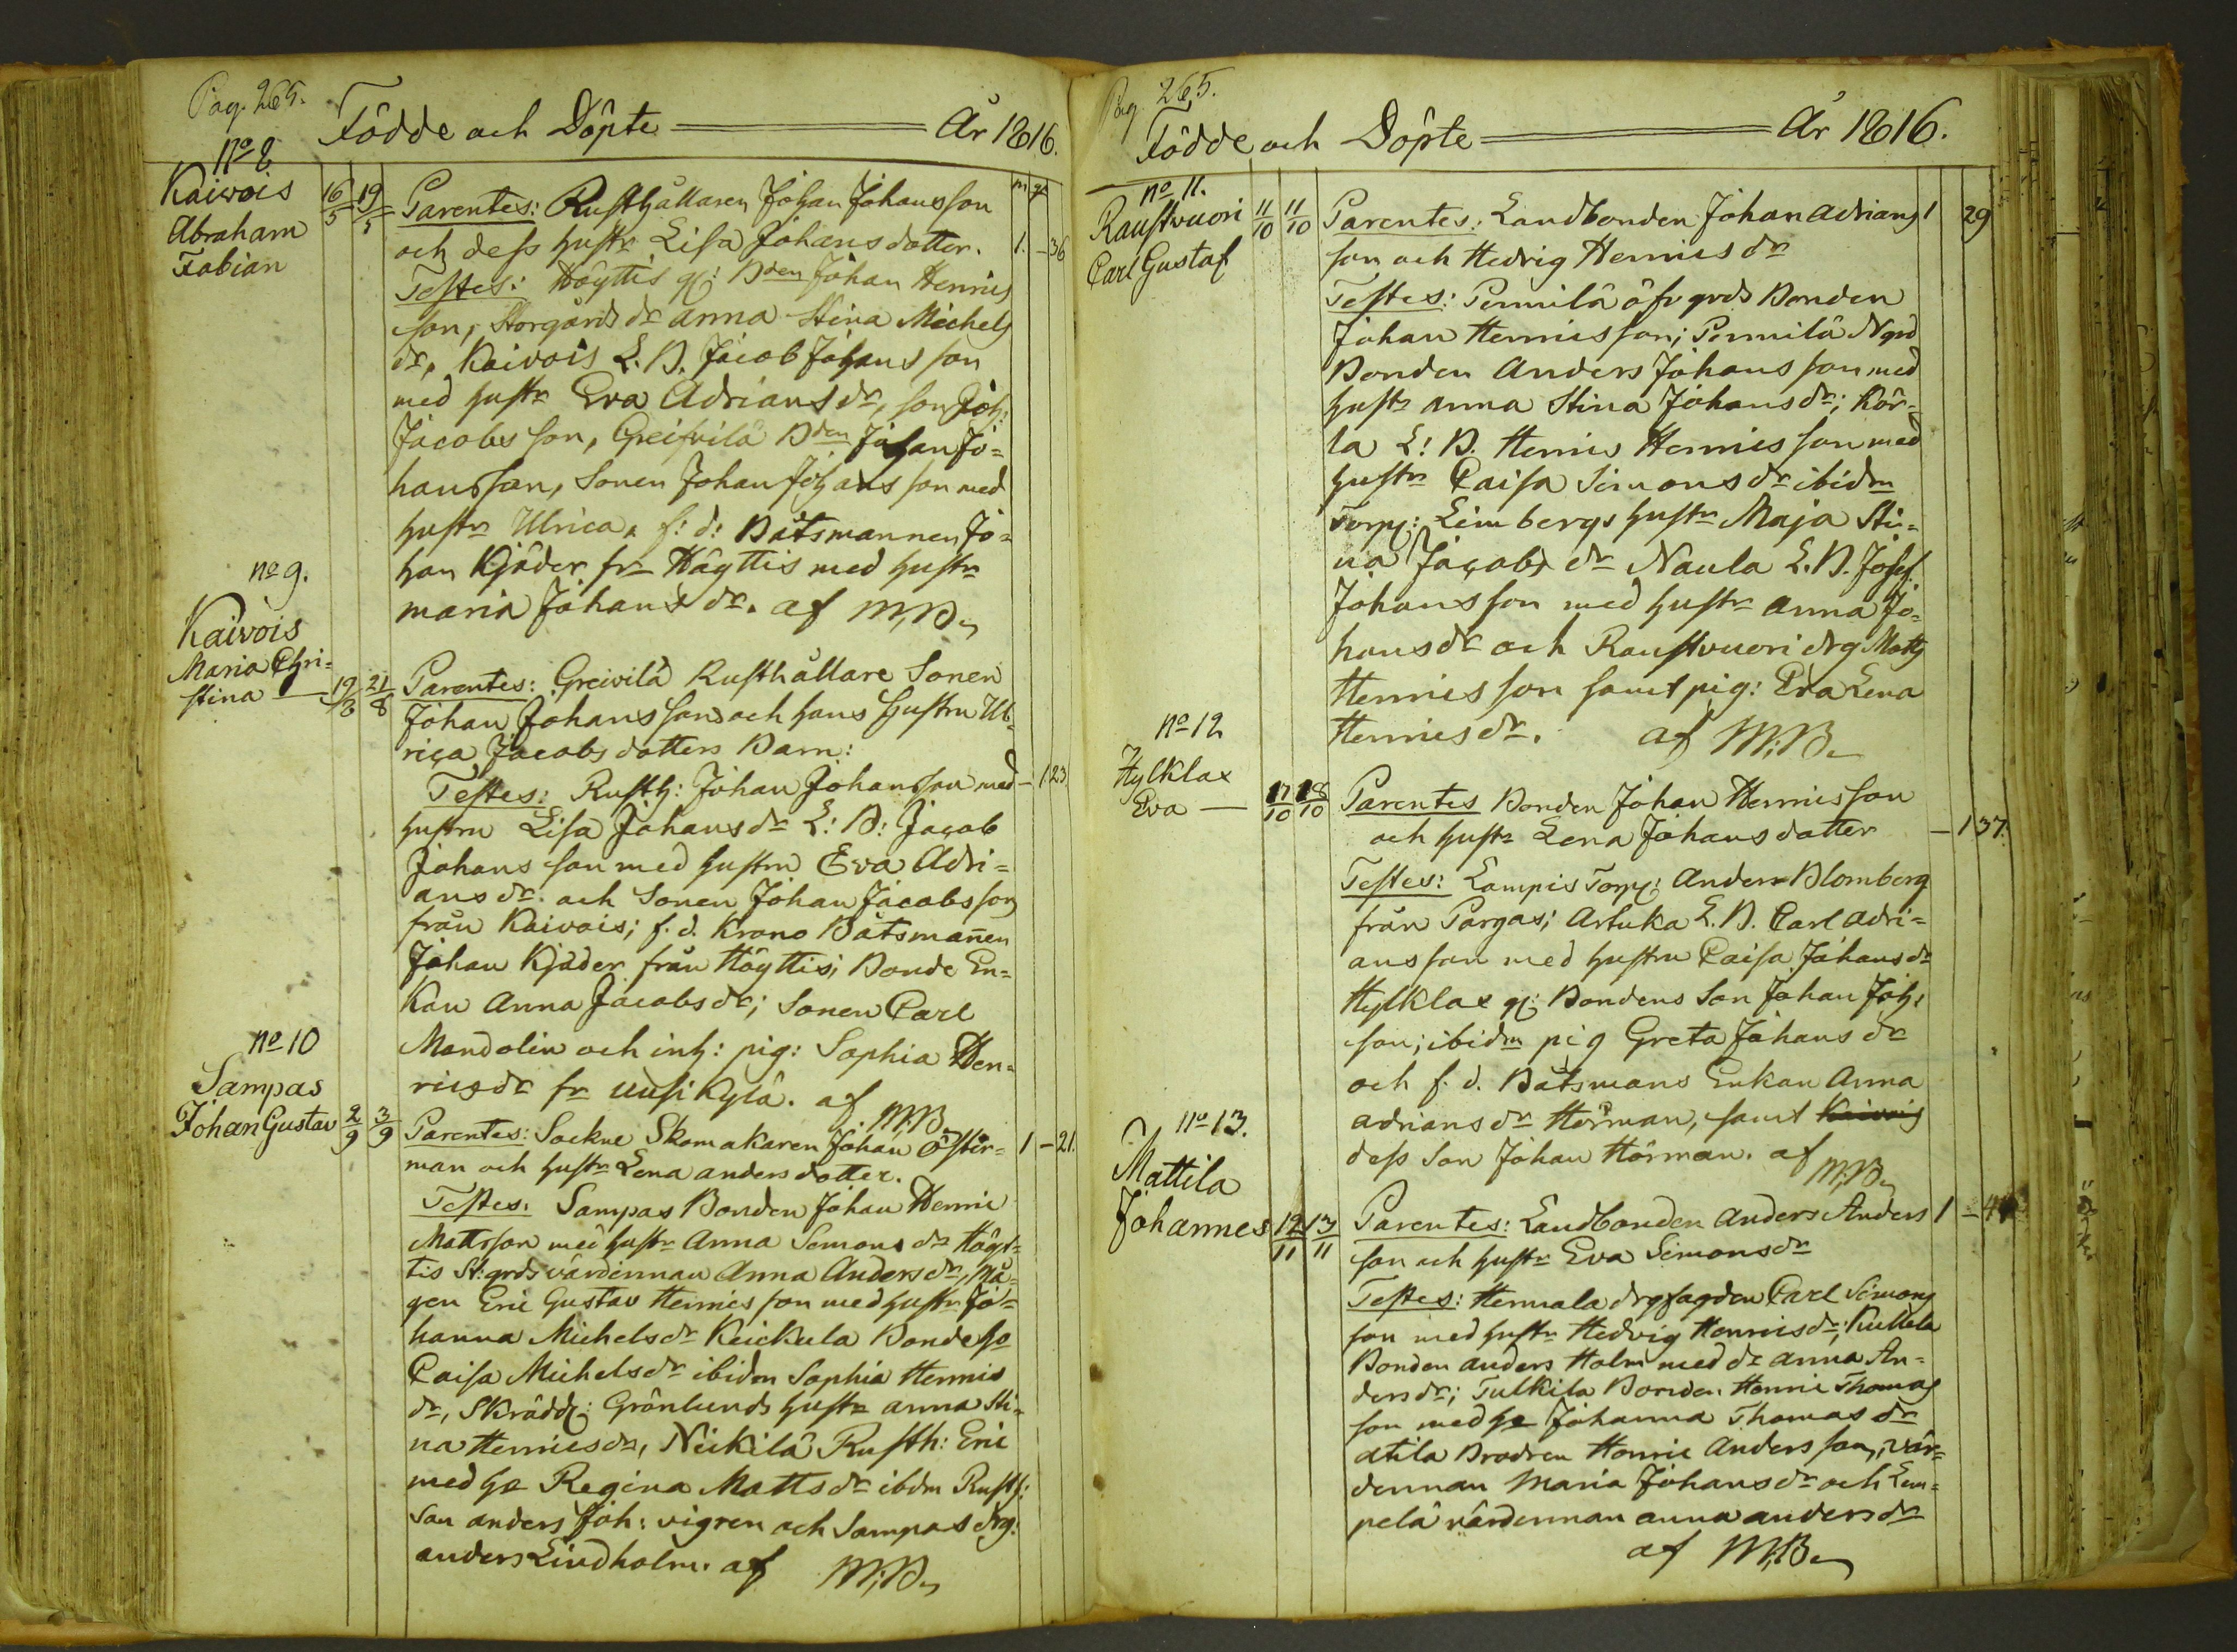 Pag. 265.
Födde och Döpte År 1816.
No 8
Kaivois
Abraham
Fabian
16/5 19/5
Parentes: Rusthållaren Johan Johansson
och dess hustr Lisa Johans dotter. 1. - 36
Testes: Höyttis Bden Johan Henrics
son, Storgårds dr Anna Stina Michels
dr, Kaivois L. B. Jacob Johans son
med hustr Eva Adrians dr, son Joh:
Jacobs son, Greifvilä Bden Johan Jo=
hansson, Sonen Johan Johans son med
hustr Ulrica, f: d: Båtsmannen Jo=
han Kjäder fr Höyttis med hustr
maria Johans dr. af M,B
No 9.
Kaivois
Maria Chri=
stina 19/8 21/8
Parentes: Greivilä Rusthållare Sonen
Johan Johans son och hans Hustru Ul=
rica Jacobs dotters Barn:
Testes: Rusth: Johan Johansson med - 1 23
hustru Lisa Johans dr L: B: Jacob
Johans son med hustru Eva Adri=
ans dr. och Sonen Johan Jacobsson
från Kaivois; f. d. Krono Båtsmanen
Johan Kjäder från Höyttis; Bonde En=
kan Anna Jacobs dr; Sonen Carl
Mandolin och inh: pig: Sophia Hen=
rics dr fr Uusikylä. af M,B
No 10
Sampas
Johan Gustav 2/9 3/9
Parentes: Sockne Skomakaren Johan Öster= 1 - 21.
man och hustr Lena anders dotter.
Testes. Sampas Bonden Johan Henric
Mattsson med hustr Anna Simons dr Höyt=
tis St: grds värdinnan Anna Anders dr, Må=
gen Eric Gustav Henrics son med hustr Jo=
hanna Michels dr Keickula Bonde
Caisa Michels dr ibidm Sophia Henrics
dr, Skrädd: Grönlunds hustr anna Sti=
na Henrics dr, Neikilä Rusth: Eric
med he Regina Matts dr ibdm Rusth:
Son anders Joh: vigren och Sampas drg:
anders Lindholm. af M;B
Pag. 265.
Födde och Döpte År 1816.
No 11.
Raustvuori
Carl Gustaf
11/10 11/10
Parentes: Landbonden Johan Adrians 1 29
son och Hedvig Henrics dr
Testes: Pernilä öfv grds Bonden
Johan Henricsson; Pernilä Ngrd
Bonden Anders Johans son med
hustr anna Stina Johans dr; Kär=
la L: B. Henric Henrics son med
hustr Caisa Simons dr ibidm
Torp: Limbergs hustr Maja Sti=
na Jacobs dr Naula L. B. Josef
Johans son med hustr anna Jo=
hans dr och Raustvuori drg Matts
Henrics son samt pig: Eva Lena
Henrics dr. af M;B
No 12
Hylklax
Eva 17/10 18/10
Parentes Bonden Johan Henrisson
och hustr Lena Johans dotter - 1 37.
Testes: Lampis Torp: Anders Blomberg
från Pargas; Artuka L. B. Carl Adri=
ansson med hustru Caisa Johans dr
Hylklax Bondens Son Johan Joh:
son; ibidm pig Greta Johans dr
och f. d. Båtsmans Enkan Anna
adrians dr Hörman, samt Kaivois
dess Son Johan Hörman. af M;B
No 13.
Mattila
Johannes 12/11 13/11
Parentes: Landbonden Anders Anders 1
son och hustr Eva Simons dr
Testes: Hennala drgfogden Carl Simons
son med hustr Hedvig Henrics dr;
Bonden anders Holm med dr anna An=
ders dr; Tulkila Bonden Henric Thomas
son med he Johanna Thomas dr
Atila Brodren Henric Anders son, vär=
dinnan Maria Johans dr och Lem=
pelä värdinnan anna anders dr
af M;B